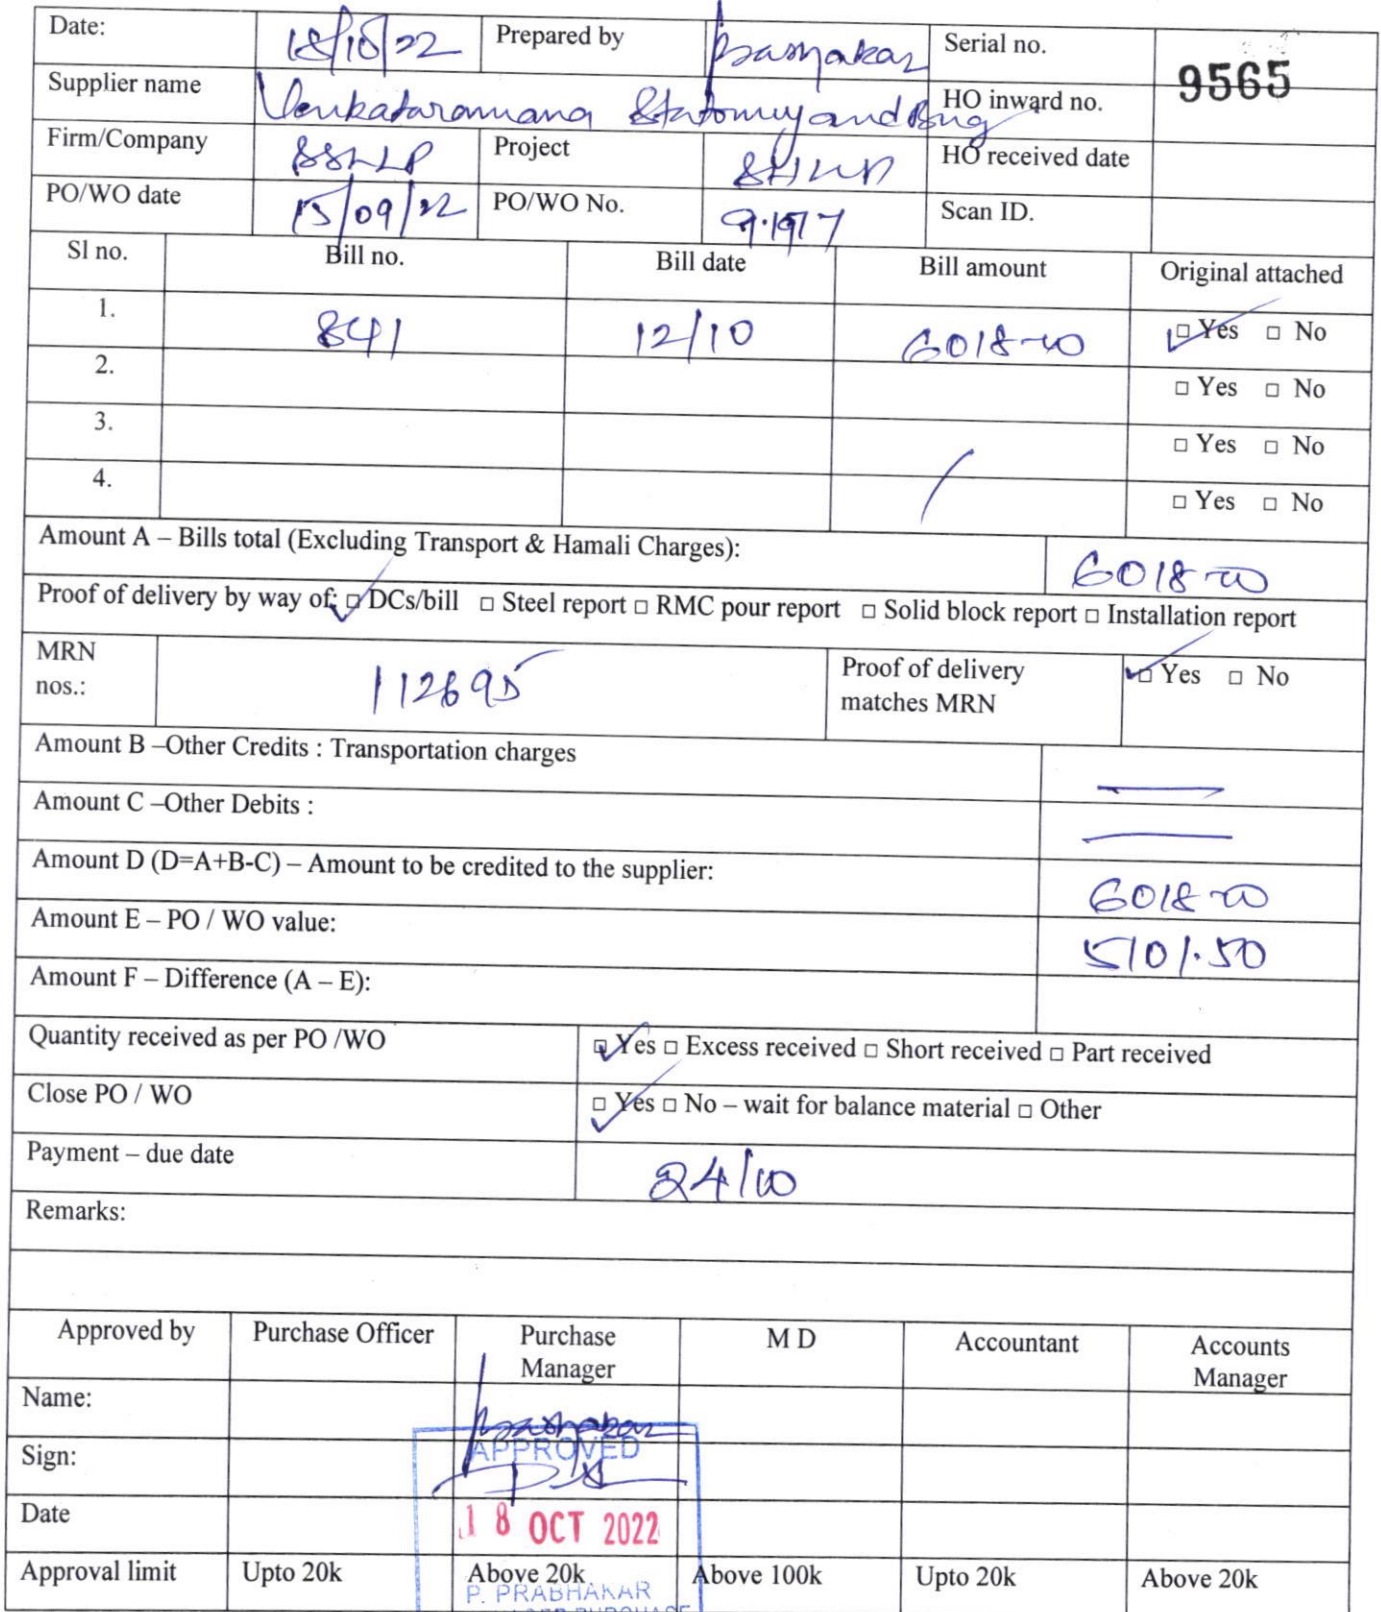 Date: 18/10/22 Prepared by Prabhakar Serial no. 9565
Supplier name Venkataramana Stationery and Bng HO inward no.
Firm/Company SSLLP Project HO received date
PO/WO date 15/09/22 PO/WO No. Scan ID.
Sl no. Bill no. Bill date Bill amount Original attached
1. 841 12/10 6018-00 □ Yes □ No
2. □ Yes □ No
3. □ Yes □ No
4. □ Yes □ No
Amount A – Bills total (Excluding Transport & Hamali Charges): 6018-00
Proof of delivery by way of: □ DCs/bill □ Steel report □ RMC pour report □ Solid block report □ Installation report
MRN nos.: 112695 Proof of delivery matches MRN □ Yes □ No
Amount B –Other Credits : Transportation charges
Amount C –Other Debits :
Amount D (D=A+B-C) – Amount to be credited to the supplier: 6018-00
Amount E – PO / WO value: 5101.50
Amount F – Difference (A – E):
Quantity received as per PO /WO □ Yes □ Excess received □ Short received □ Part received
Close PO / WO □ Yes □ No – wait for balance material □ Other
Payment – due date 24/10
Remarks:
Approved by Purchase Officer Purchase Manager M D Accountant Accounts Manager
Name: Prabhakar
APPROVED
Sign:
Date 18 OCT 2022
Approval limit Upto 20k Above 20k Above 100k Upto 20k Above 20k
P. PRABHAKAR